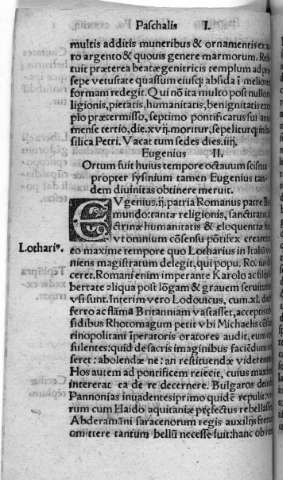 Paschalis I.
multis additis muneribus & ornamentis ex au
ro argento & quouis genere marmorum. Resti
tuit præterea beatæ genitricis templum ad præ
sepe vetustate quassum eiusq; absida i meliorem
formam redegit. Qui nō ita multo post nullum re
ligionis, pietatis, humanitatis, benignitatis exem
plo prætermisso, septimo pontificatus sui anno
mense tertio, die. xvij. moritur, sepeliturq; in ba
silica Petri. Vacat tum sedes dies. iiij.
Eugenius II.
Ortum fuit huius tempore octauum scisma
propter sysinium tamen Eugenius tan
dem diuinitas obtinere meruit.
EVgenius. ij. patria Romanus patre
mundo: tanta religionis, sanctitatis
ctrinæ humanitatis & eloquentiæ
vt omnium cōsensu pōtifex creatus
Lothari⁹.
eo maxime tempore quo Lotharius in Italiam
niens magistratum delegit, qui popu. Ro. ius
ceret. Romani enim imperante Karolo ac filijs
bertate aliqua post lōgam & grauem seruitutem
vsi sunt. Interim vero Lodouicus, cum. xl. dies
ferro ac flāma Britanniam vastasset, acceptis
sidibus Rhotomagum petit vbi Michaelis cōstā
tinopolitani īperatoris oratores audit, eum
sulentes: quid de sacris imaginibus faciēdum
seret: abolendæ ne: an restituendæ viderentur
Hos autem ad pontificem reiecit, cuius maxime
intererat ea de re decernere. Bulgaros deinde
Pannonias inuadentes primo quidē repulit:
rum cum Haido aquitaniæ prefectus rebellasset
Abderamāni saracenorum regis auxilijs fretus
omittere tantum bellū necesse fuit: hanc ob rem